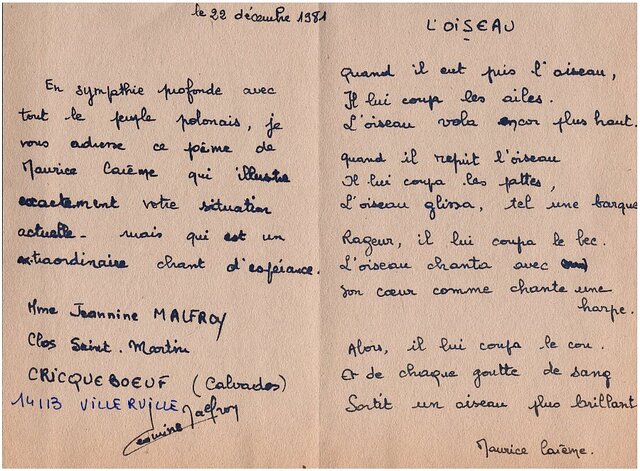 le 22 décembre 1981
En sympathie profonde avec
tout le peuple polonais, je
vous adresse ce poème de
Maurice Carême qui illustre
exactement votre situation
actuelle - mais qui est un
extraordinaire chant d'espérance.
Mme Jeannine MALFROY
Clos Saint-Martin
CRICQUEBOEUF (Calvados)
14113 VILLERVILLE
Jeannine Malfroy
L'OISEAU
Quand il eut pris l'oiseau,
Il lui coupa les ailes.
L'oiseau vola encor plus haut.
quand il reprit l'oiseau
Il lui coupa les pattes,
L'oiseau glissa, tel une barque
Rageur, il lui coupa le bec.
L'oiseau chanta avec
son cœur comme chante une
harpe.
Alors, il lui coupa le cou.
Et de chaque goutte de sang
Sortit un oiseau plus brillant
Maurice Carême.